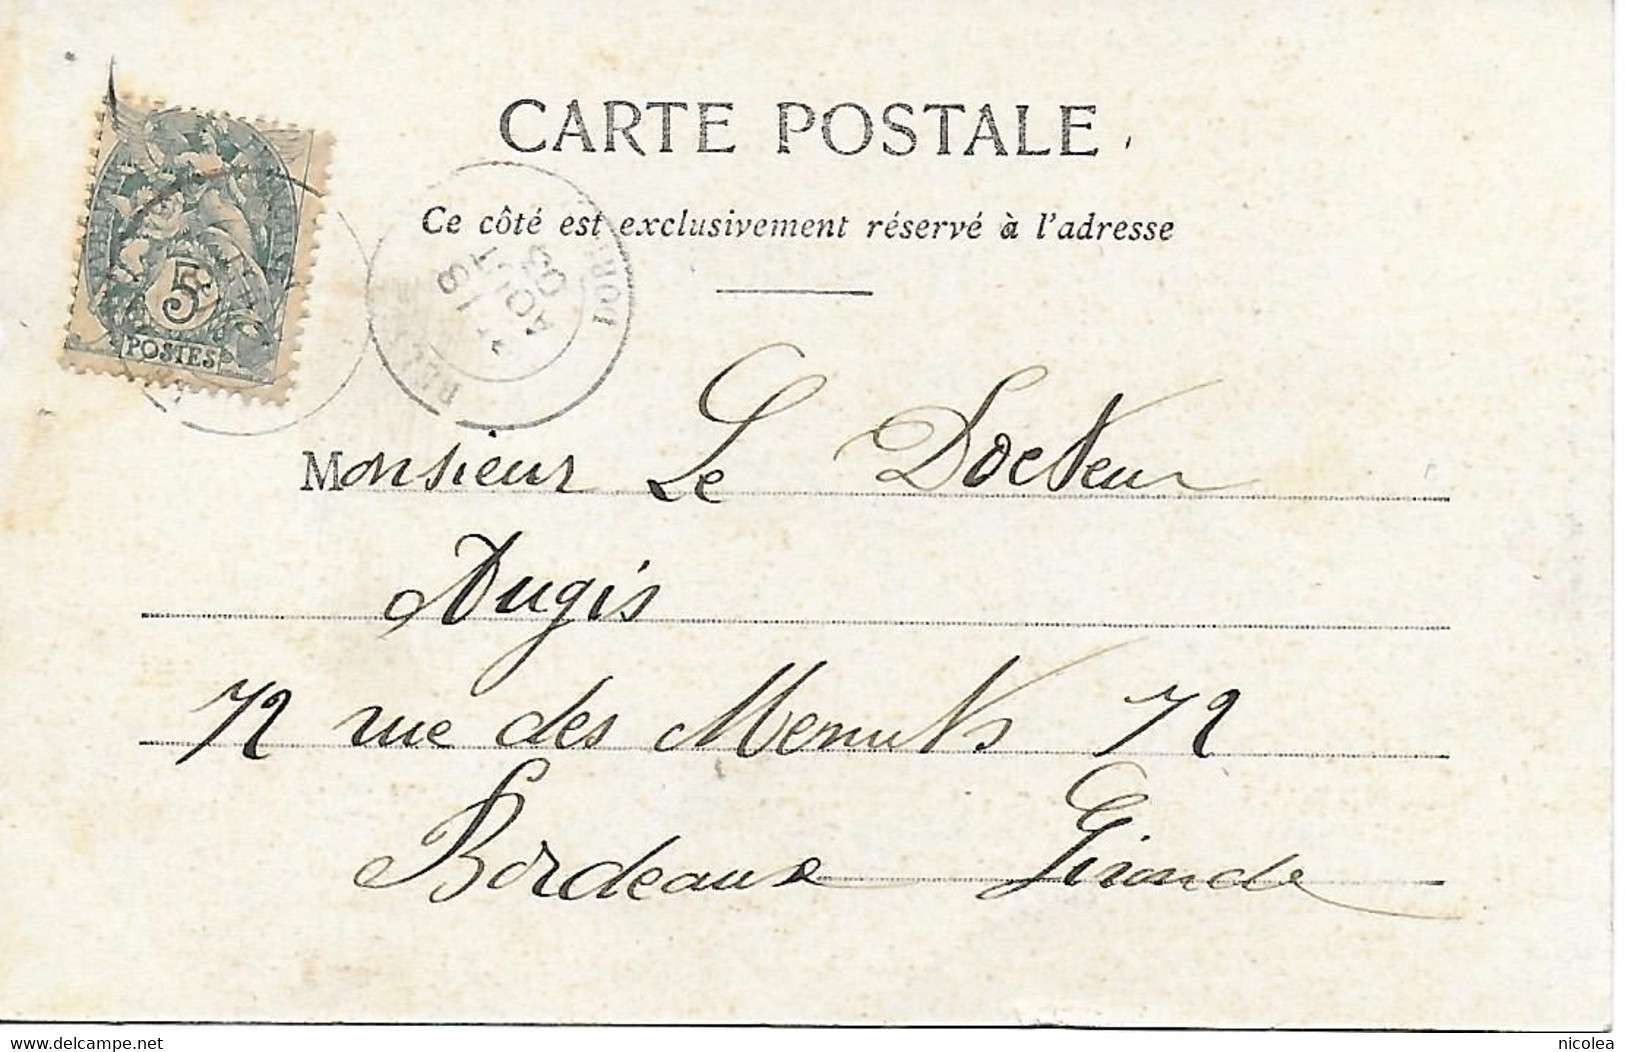 CARTE POSTALE
Ce côté est exclusivement réservé à l'adresse
5c
POSTES
18
AOUT
03
Monsieur Le Docteur
Augis
72 rue des Menuts 72
Bordeaux Gironde
www.delcampe.net
nicolea